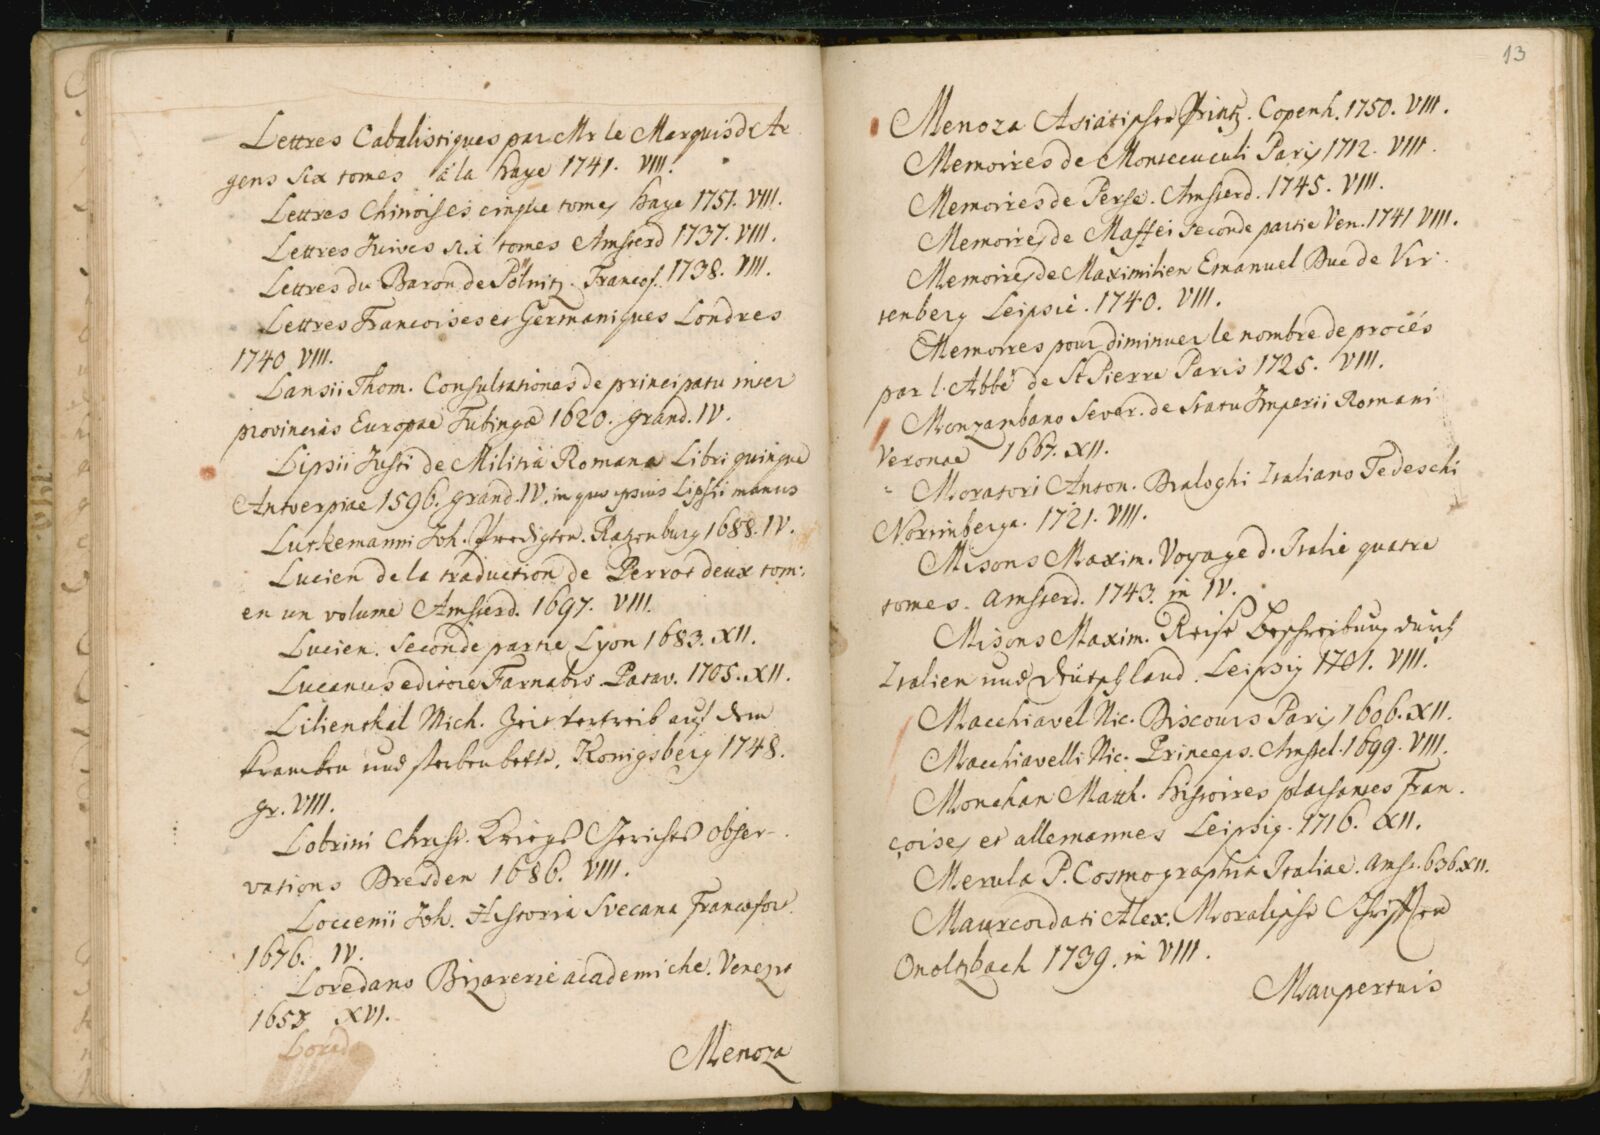 Lettres Cabalistiques par Mr le Marquis d'Ar
gens six tomes à la haye 1741. VIII.
Lettres Chinoises cinque tomes haye 1751. VIII.
Lettres Juives six tomes Amsterd 1737. VIII.
Lettres du Baron de Pölnitz. Francof. 1738. VIII.
Lettres Francoises et Germaniques Londres
1740 VIII.
Lansii Thom. Consultationes de principatu inter
provincias Europae Tubingæ 1620. grand. IV.
Lipsii Justi de Militia Romana Libri quinque
Antverpiae 1596. grand. IV. in quo ipsius Lipsii manus
Lutkemanni Joh. Predigten. Razenburg 1688. IV.
Lucien de la traduction de Perrot deux tom:
en un volume Amsterd. 1697. VIII.
Lucien. Seconde partie Lyon 1683. XII.
Lucanus editore Farnabio Patav. 1705. XII.
Lilienthal Mich. Zeit vertreib auf dem
krancken und sterbenbette. Konigsberg 1748.
gr. VIII.
Lobrini Christ. Kriegs Gerichts obser-
vations Dresden 1686. VIII.
Loccenii Joh. Historia Svecana Francofor.
1676. IV.
Loredano Bizarerie academiche. Venezia
1653 XVI.
Lored
Menoza
13
Menoza Asiatischer Printz. Copenh. 1750. VIII.
Memoires de Montecuculi Paris 1712. VIII.
Memoires de Perse. Amsterd. 1745. VIII.
Memoires de Maffei seconde partie Ven. 1741 VIII.
Memoires de Maximilien Emanuel Duc de Vir-
tenberg Leipsic. 1740. VIII.
Memoires pour diminuer le nombre de procés
par l'Abbé de St Pierre Paris 1725. VIII.
Monzambano Sever. de Statu Imperii Romani
Veronae 1667. XII.
Moratori Anton. Dialoghi Italiano Tedeschi
Norimberga. 1721. VIII.
Misons Maxim. Voyage d'Italie quatre
tomes. Amsterd. 1743. in IV.
Misons Maxim. Reise beschreibung durch
Italien und Deutschland. Leipsig 1701. VIII.
Macchiavel Nic. Discours Paris 1606. XII.
Macchiavelli Nic. Princeps. Amstel. 1699. VIII.
Monehan Matth. histoires plaisantes Fran-
çoises et allemannes Leipsig. 1716. XII.
Merula P. Cosmographia Italiae. Amst. 636. XII.
Maurcordati Alex. Moralische Schrifften
Onoltzbach 1739. in VIII.
Maupertuis